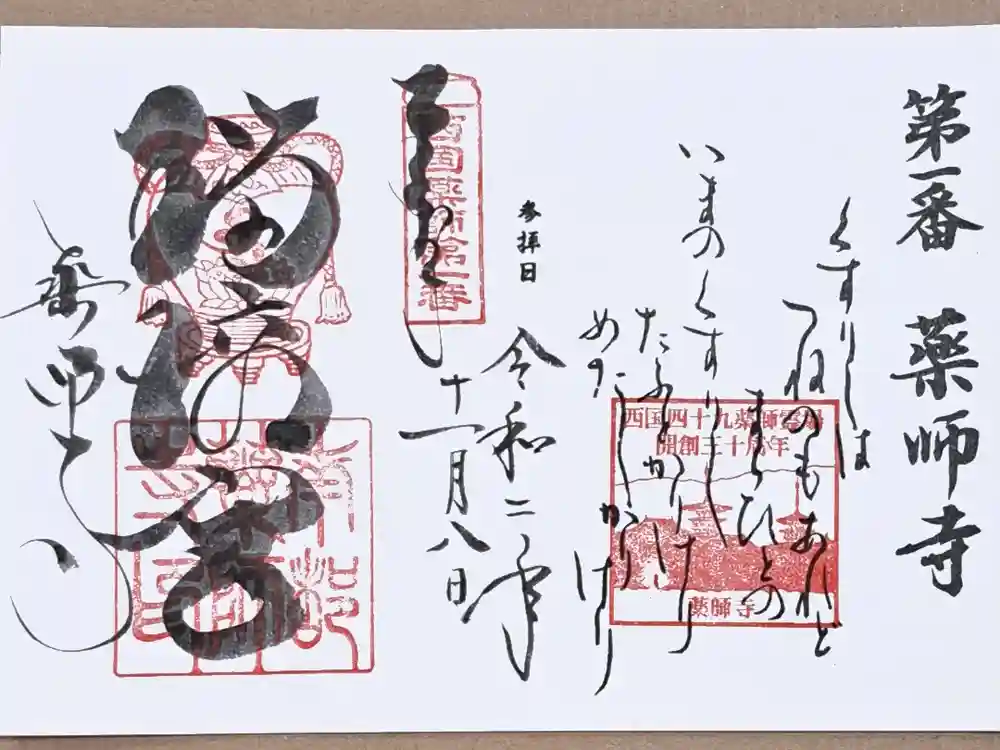 第一番 薬師寺
くすりしは
つねのもあれど
まらひとの
いまのくすりし
たふとかりけり
めだしかりけり
参拝日
令和二年
十一月八日
西国四十九薬師霊場
開創三十周年
薬師寺
西国薬師第一番
瑠璃宮
薬师寺